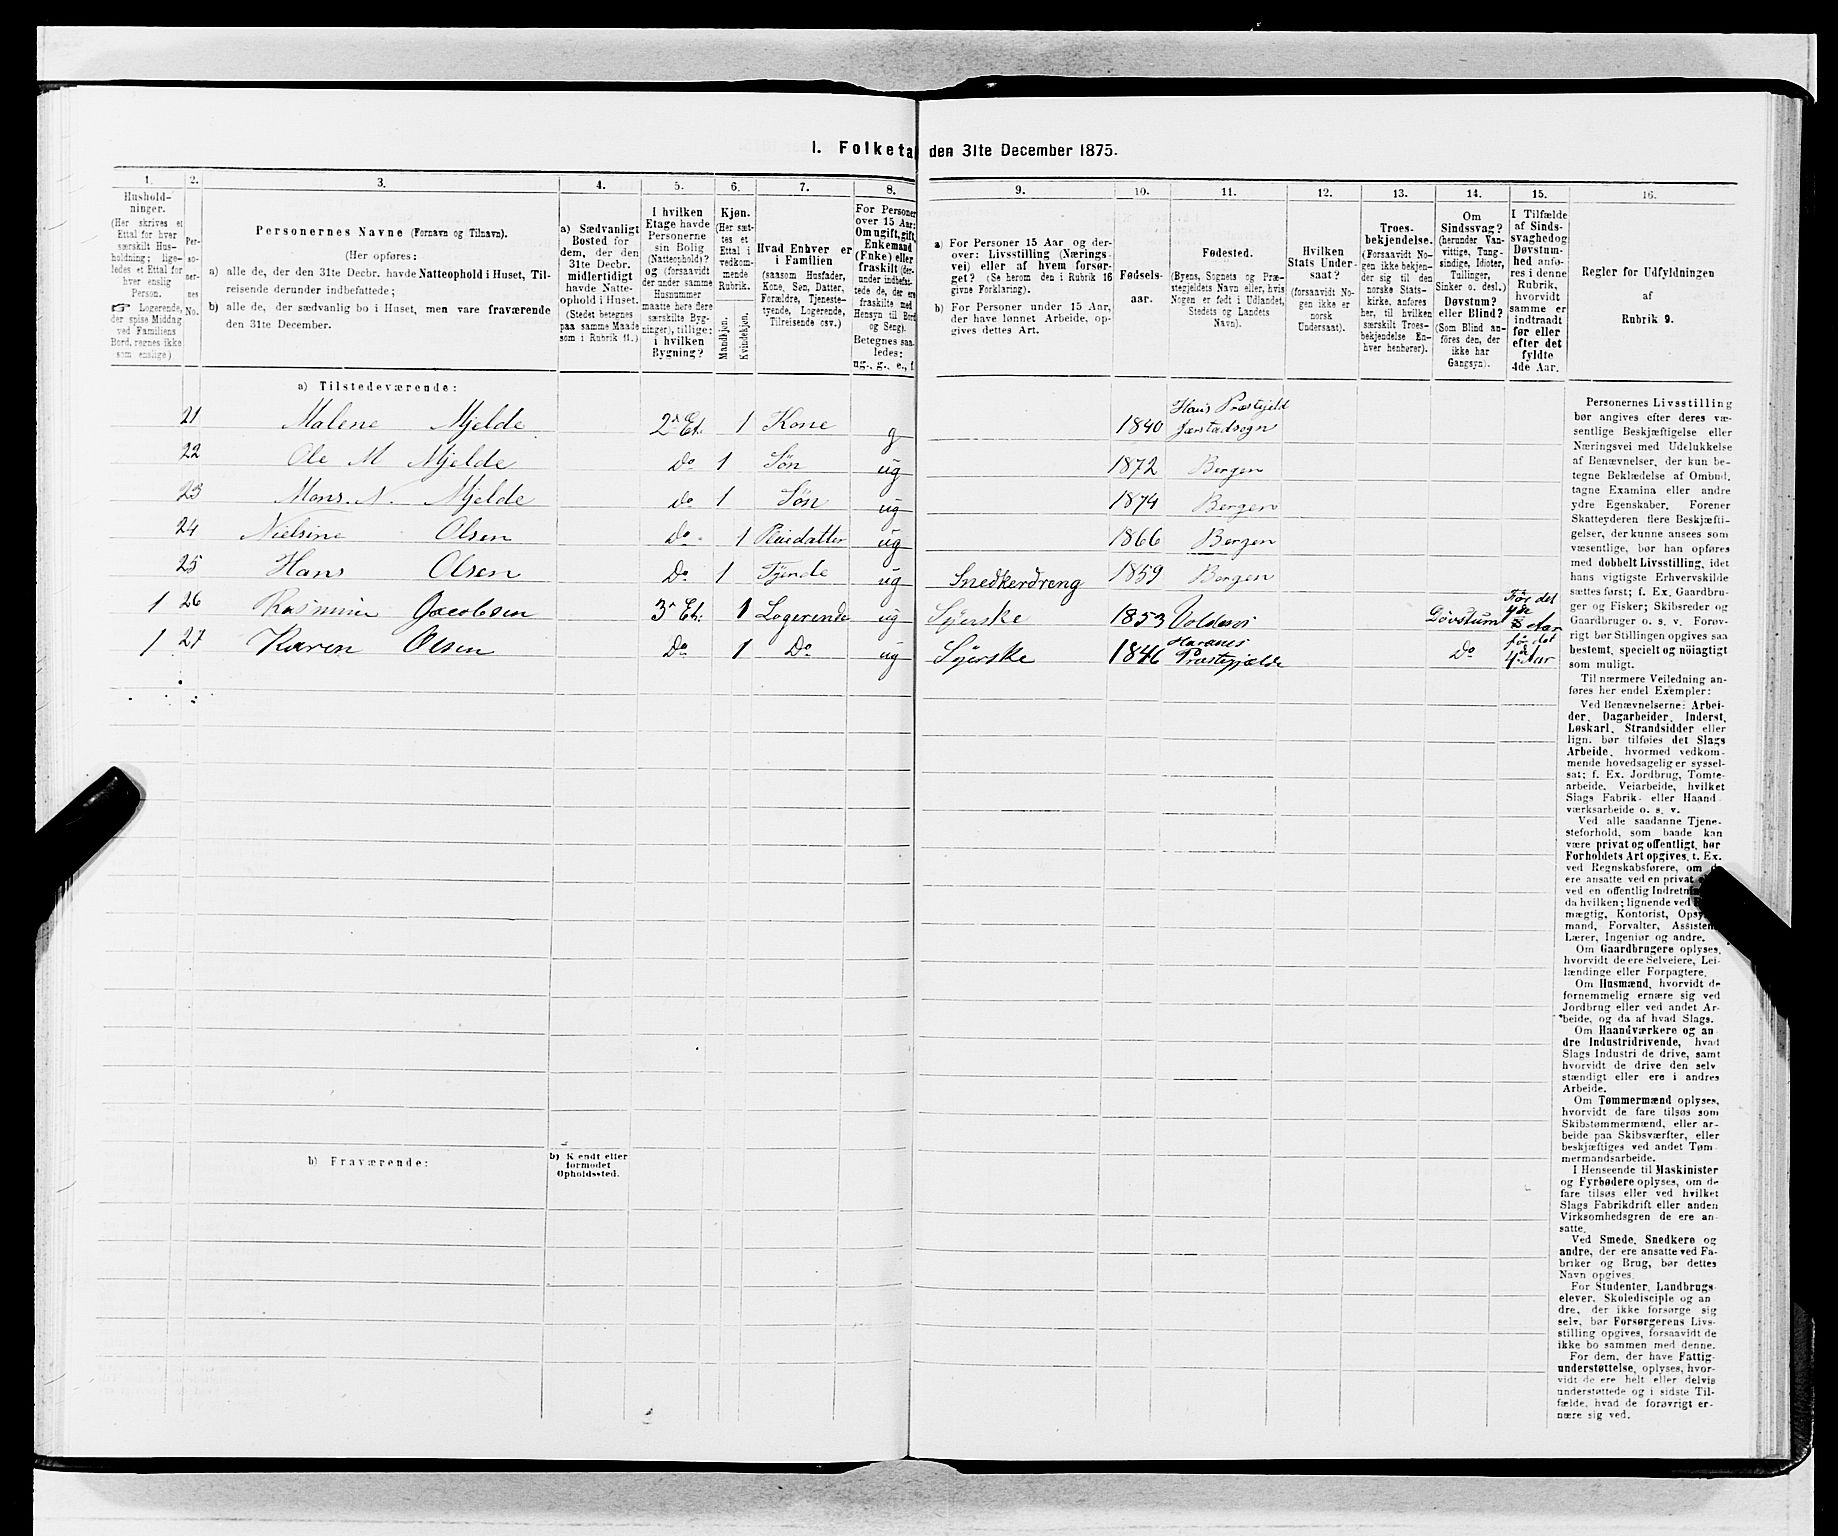 1. Folketal den 31te December 1875.
1.
Hushold-
ninger.
(Her skrives et
Ettal for hver
særskilt Hus-
holdning; lige-
ledes et Ettal for
hver enslig
Person.
☞ Logerende,
der spise Middag
ved Familiens
Bord, regnes ikke
som enslige)
2.
Per-
so-
ner-
nes
No.
3.
Personernes Navne (Fornavn og Tilnavn).
(Her opføres:
a) alle de, der den 31te Decbr. havde Natteophold i Huset, Til-
reisende derunder indbefattede;
b) alle de, der sædvanlig bo i Huset, men vare fraværende
den 31te December.
4.
a) Sædvanligt
Bosted for
dem, der den
31te Decbr.
midlertidigt
havde Natte-
ophold i Huset.
(Stedet betegnes
paa samme Maade
som i Rubrik 11.)
5.
I hvilken
Etage havde
Personerne
sin Bolig
(Natteophold)?
og (forsaavidt
der under samme
Husnummer
maatte høre flere
særskilte Byg-
ninger), tillige:
i hvilken
Bygning?
6.
Kjøn.
(Her sæt-
tes et
Ettal i
vedkom-
mende
Rubrik.
Mandkjøn.
Kvindekjøn.
7.
Hvad Enhver er
i Familien
(saasom Husfader,
Kone, Søn, Datter,
Forældre, Tjeneste-
tyende, Logerende,
Tilreisende osv.)
8.
For Personer
over 15 Aar:
Om ugift, gift,
Enkemand
(Enke) eller
fraskilt (der-
under indbefat-
tede de, der ere
fraskilte med
Hensyn til Bord
og Seng).
Betegnes saa-
ledes:
ug., g., e., f.
9.
a) For Personer 15 Aar og der-
over: Livsstilling (Nærings-
vei) eller af hvem forsør-
get? (Se herom den i Rubrik 16
givne Forklaring).
b) For Personer under 15 Aar,
der have lønnet Arbeide, op-
gives dettes Art.
10.
Fødsels-
aar.
11.
Fødested.
(Byens, Sognets og Præ-
stegjeldets Navn eller, hvis
Nogen er født i Udlandet,
Stedets og Landets
Navn).
12.
Hvilken
Stats Under-
saat?
(forsaavidt No-
gen ikke er
norsk
Undersaat).
13.
Troes-
bekjendelse.
(Forsaavidt No-
gen ikke bekjen-
der sig til den
norske Stats-
kirke, anføres
her, til hvilken
særskilt Troes-
bekjendelse En-
hver henhører).
14.
Om
Sindssvag?
(herunder Van-
vittige, Tung-
sindige, Idioter,
Tullinger,
Sinker o. desl.)
Døvstum?
eller Blind?
(Som Blind an-
føres den, der
ikke har
Gangsyn).
15.
I Tilfælde
af Sinds-
svaghed og
Døvstum-
hed anfø-
res i denne
Rubrik,
hvorvidt
samme er
indtraadt
før eller
efter det
fyldte
4de Aar.
16.
Regler for Udfyldningen
af
Rubrik 9.
a) Tilstedeværende:
21 Malene Mjelde 2n Et. 1 Kone g 1840 Haus Præstejeld
22 Ole M Mjelde Do 1 Søn ug 1872 Bergen
23 Mons. N. Mjelde Do 1 Søn ug 1874 Bergen
24 Nielsine Olsen Do 1 Pleiedatter ug 1866 Bergen
25 Hans Olsen Do 1 Tjende ug Snedkerdreng 1859 Bergen
1 26 Rasmine Jacobsen 3n Et: 1 Logerende ug Syerske 1853 Døvstum Før det 4de Aar
1 27 Karen Olsen Do 1 Do ug Syerske 1846 Præstegjælde Do før det 4de Aar
b) Fraværende:
b) Kjendt eller
formodet
Opholdssted.
Personernes Livsstilling
bør angives efter deres væ-
sentlige Beskjæftigelse eller
Næringsvei med Udelukkelse
af Benævnelser, der kun be-
tegne Beklædelse af Ombud,
tagne Examina eller andre
ydre Egenskaber. Forener
Skatteyderen flere Beskjæfti-
gelser, der kunne ansees som
væsentlige, bør han opføres
med dobbelt Livsstilling, idet
hans vigtigste Erhvervskilde
sættes først; f. Ex. Gaardbru-
ger og Fisker; Skibsreder og
Gaardbruger o. s. v. Forøv-
rigt bør Stillingen opgives saa
bestemt, specielt og nøiagtigt
som muligt.
Til nærmere Veiledning an-
føres her endel Exempler:
Ved Benævnelserne: Arbei-
der, Dagarbeider, Inderst,
Løskarl, Strandsidder eller
lign. bør tilføies det Slags
Arbeide, hvormed vedkom-
mende hovedsagelig er syssel-
sat; f. Ex. Jordbrug, Tomte-
arbeide, Veiarbeide, hvilket
Slags Fabrik- eller Haand-
værksarbeide o. s. v.
Ved alle saadanne Tjene-
steforhold, som baade kan
være privat og offentligt, bør
Forholdets Art opgives, t. Ex.
ved Regnskabsførere, om d
ere ansatte ved en privat
ved en offentlig Indretn
da hvilken; lignende ved
mægtig, Kontorist, Opsy
mand, Forvalter, Assisten
Lærer, Ingeniør og andre.
Om Gaardbrugere oplyses,
hvorvidt de ere Selveiere, Lei-
lændinge eller Forpagtere.
Om Husmænd, hvorvidt de
fornemmelig ernære sig ved
Jordbrug eller ved andet Ar-
beide, og da af hvad Slags.
Om Haandværkere og an-
dre Industridrivende, hvad
Slags Industri de drive, samt
hvorvidt de drive den selv-
stændigt eller ere i andres
Arbeide.
Om Tømmermænd oplyses,
hvorvidt de fare tilsøs som
Skibstømmermænd, eller ar-
beide paa Skibsværfter, eller
beskjæftiges ved andet Tøm-
mermandsarbeide.
I Henseende til Maskinister
og Fyrbødere oplyses, om de
fare tilsøs eller ved hvilket
Slags Fabrikdrift eller anden
Virksomhedsgren de ere an-
satte.
Ved Smede, Snedkere og
andre, der ere ansatte ved Fa-
briker og Brug, bør dettes
Navn opgives.
For Studenter, Landbrugs-
elever, Skoledisciple og an-
dre, der ikke forsørge sig
selv, bør Forsørgerens Livs-
stilling opgives, forsaavidt de
ikke bo sammen med denne.
For dem, der have Fattig-
understøttelse, oplyses, hvor-
vidt de ere helt eller delvis
understøttede og i sidste Til-
fælde, hvad de forøvrigt er-
nære sig ved.